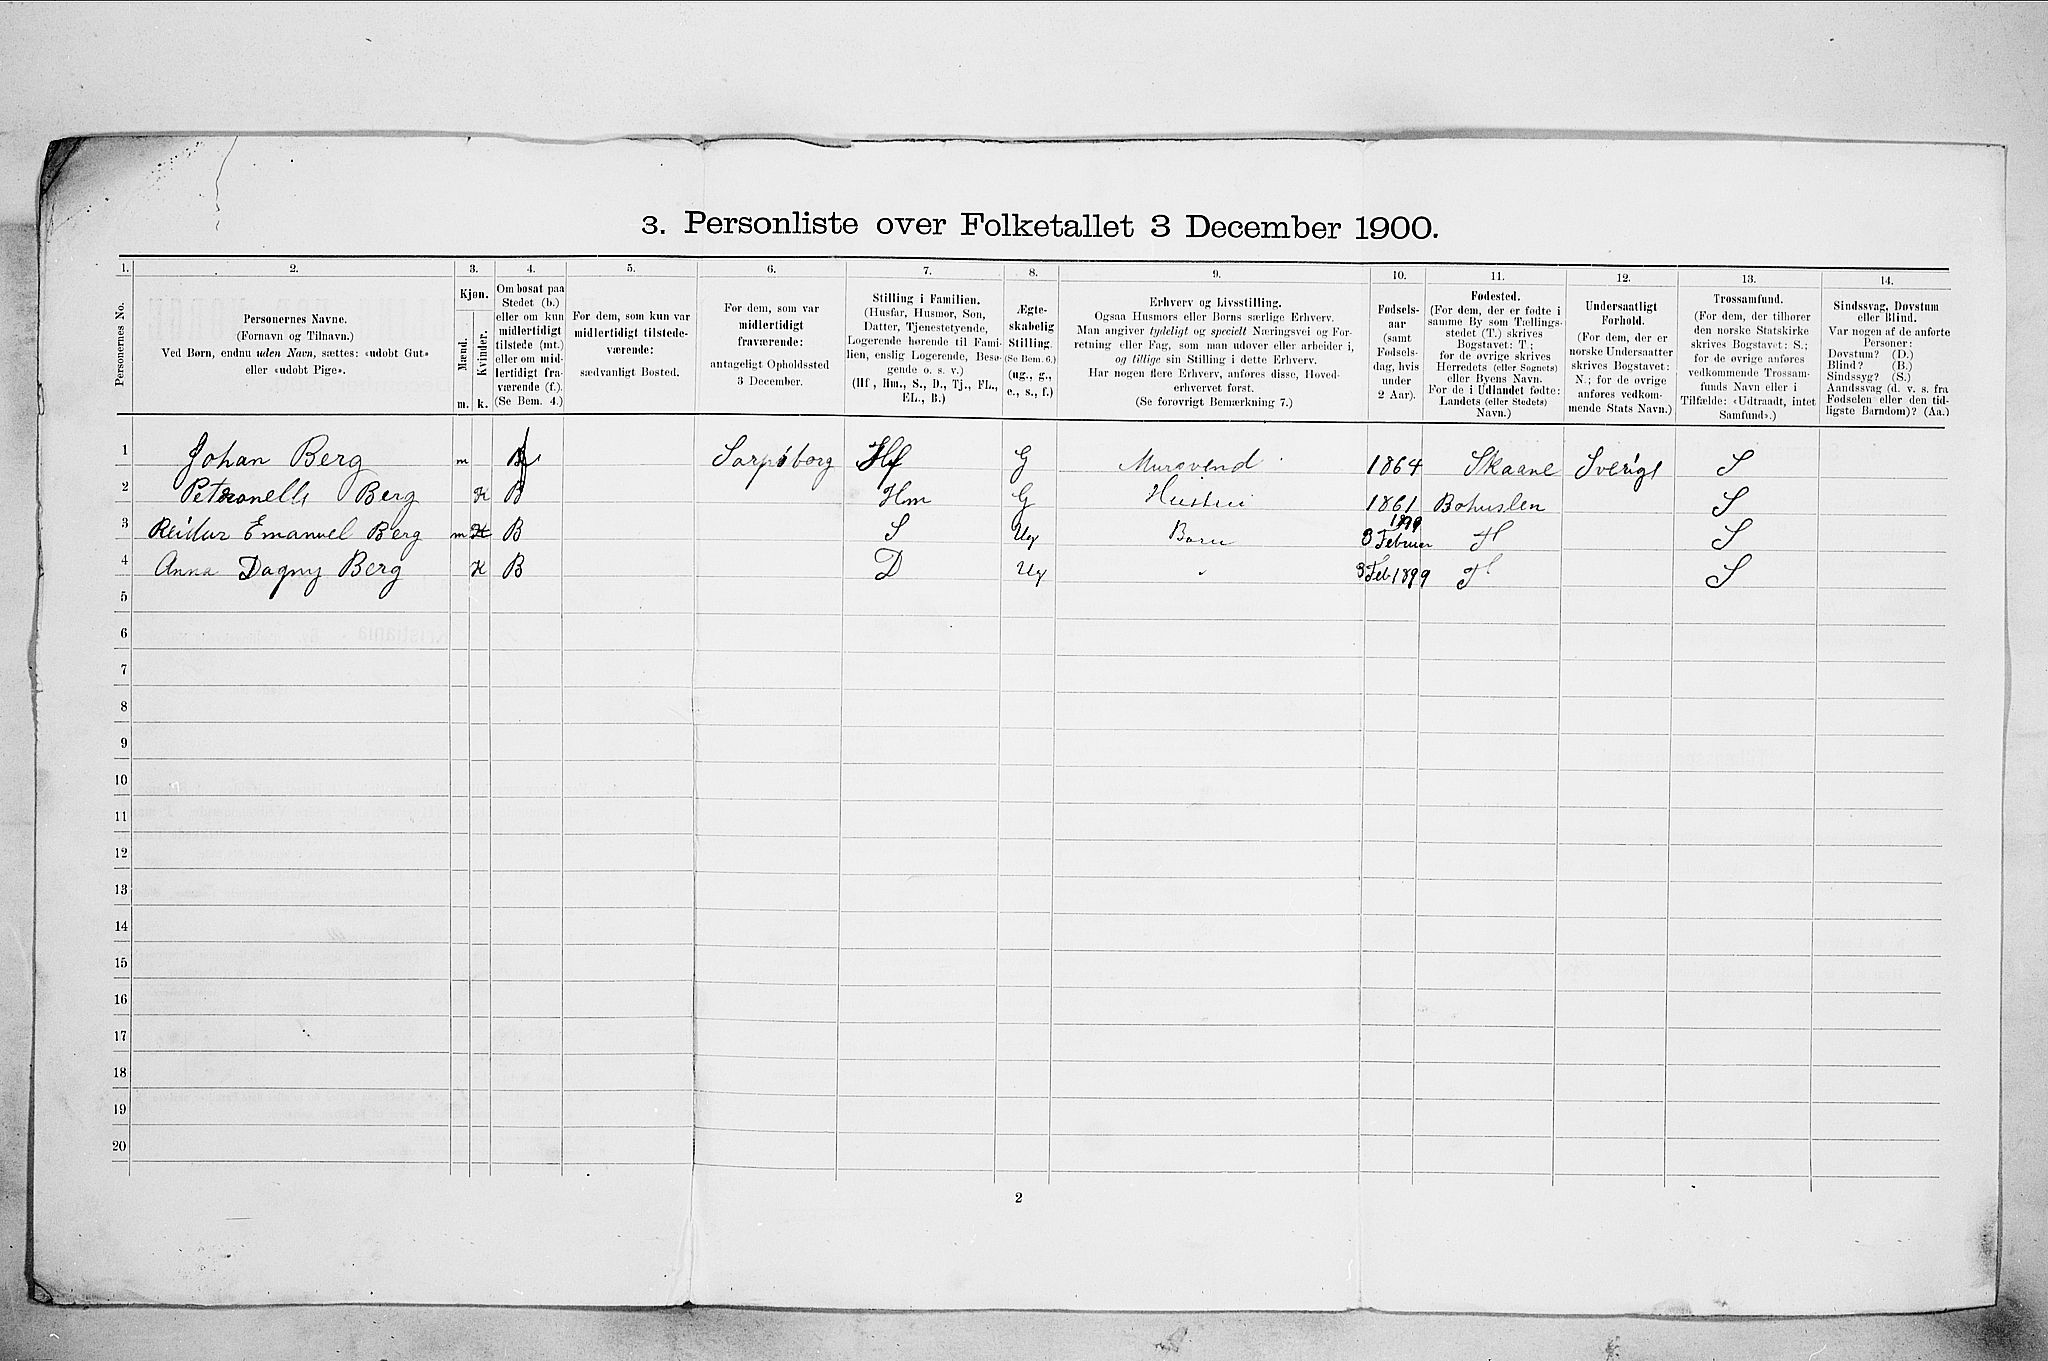 3. Personliste over Folketallet 3 December 1900.
1. 2. 3. 4. 5. 6. 7. 8. 9. 10. 11. 12. 13. 14.
Personernes No.
Personernes Navne.
(Fornavn og Tilnavn.)
Ved Børn, endnu uden Navn, sættes: «udøbt Gut»
eller «udøbt Pige».
Kjøn.
Mænd.
Kvinder.
m. k.
Om bosat paa
Stedet (b.)
eller om kun
midlertidigt
tilstede (mt.)
eller om mid-
lertidigt fra-
værende (f.).
(Se Bem. 4.)
For dem, som kun var
midlertidigt tilstede-
værende:
sædvanligt Bosted.
For dem, som var
midlertidigt
fraværende:
antageligt Opholdssted
3 December.
Stilling i Familien.
(Husfar, Husmor, Søn,
Datter, Tjenestetyende,
Logerende hørende til Fami-
lien, enslig Logerende, Besø-
gende o. s. v.)
(Hf., Hm., S., D., Tj., FL.,
EL., B.)
Ægte-
skabelig
Stilling.
(Se Bem. 6.)
(ug., g.,
e., s., f.)
Erhverv og Livsstilling.
Ogsaa Husmors eller Børns særlige Erhverv.
Man angiver tydeligt og specielt Næringsvei og For-
retning eller Fag, som man udøver eller arbeider i,
og tillige sin Stilling i dette Erhverv.
Har nogen flere Erhverv, anføres disse, Hoved-
erhvervet først.
(Se forøvrigt Bemærkning 7.)
Fødsels-
aar
(samt
Fødsels-
dag, hvis
under
2 Aar).
Fødested.
(For dem, der er fødte i
samme By som Tællings-
stedet (T.) skrives
Bogstavet: T.;
for de øvrige skrives
Herredets (eller Sognets)
eller Byens Navn.
For de i Udlandet fødte:
Landets (eller Stedets)
Navn.)
Undersaatligt
Forhold.
(For dem, der er
norske Undersaatter
skrives Bogstavet:
N.; for de øvrige
anføres vedkom-
mende Stats Navn.)
Trossamfund.
(For dem, der tilhører
den norske Statskirke
skrives Bogstavet: S.;
for de øvrige anføres
vedkommende Trossam-
funds Navn eller i
Tilfælde: «Udtraadt, intet
Samfund».)
Sindssvag, Døvstum
eller Blind.
Var nogen af de anførte
Personer:
Døvstum? (D.)
Blind? (B.)
Sindssyg? (S.)
Aandssvag (d. v. s. fra
Fødselen eller den tid-
ligste Barndom)? (Aa.)
1 Johan Berg m Sarpsborg Hf G Mursvend 1864 Skaane Sverige S
2 Petronelle Berg K B Hm G Hustru 1861 Bohuslen S
3 Reidar Emanuel Berg m K B S Ug Barn 3 Februar 1899 S
4 Anna Dagny Berg K B D Ug " 3 Feb 1899 S
5
6
7
8
9
10
11
12
13
14
15
16
17
18
19
20
2